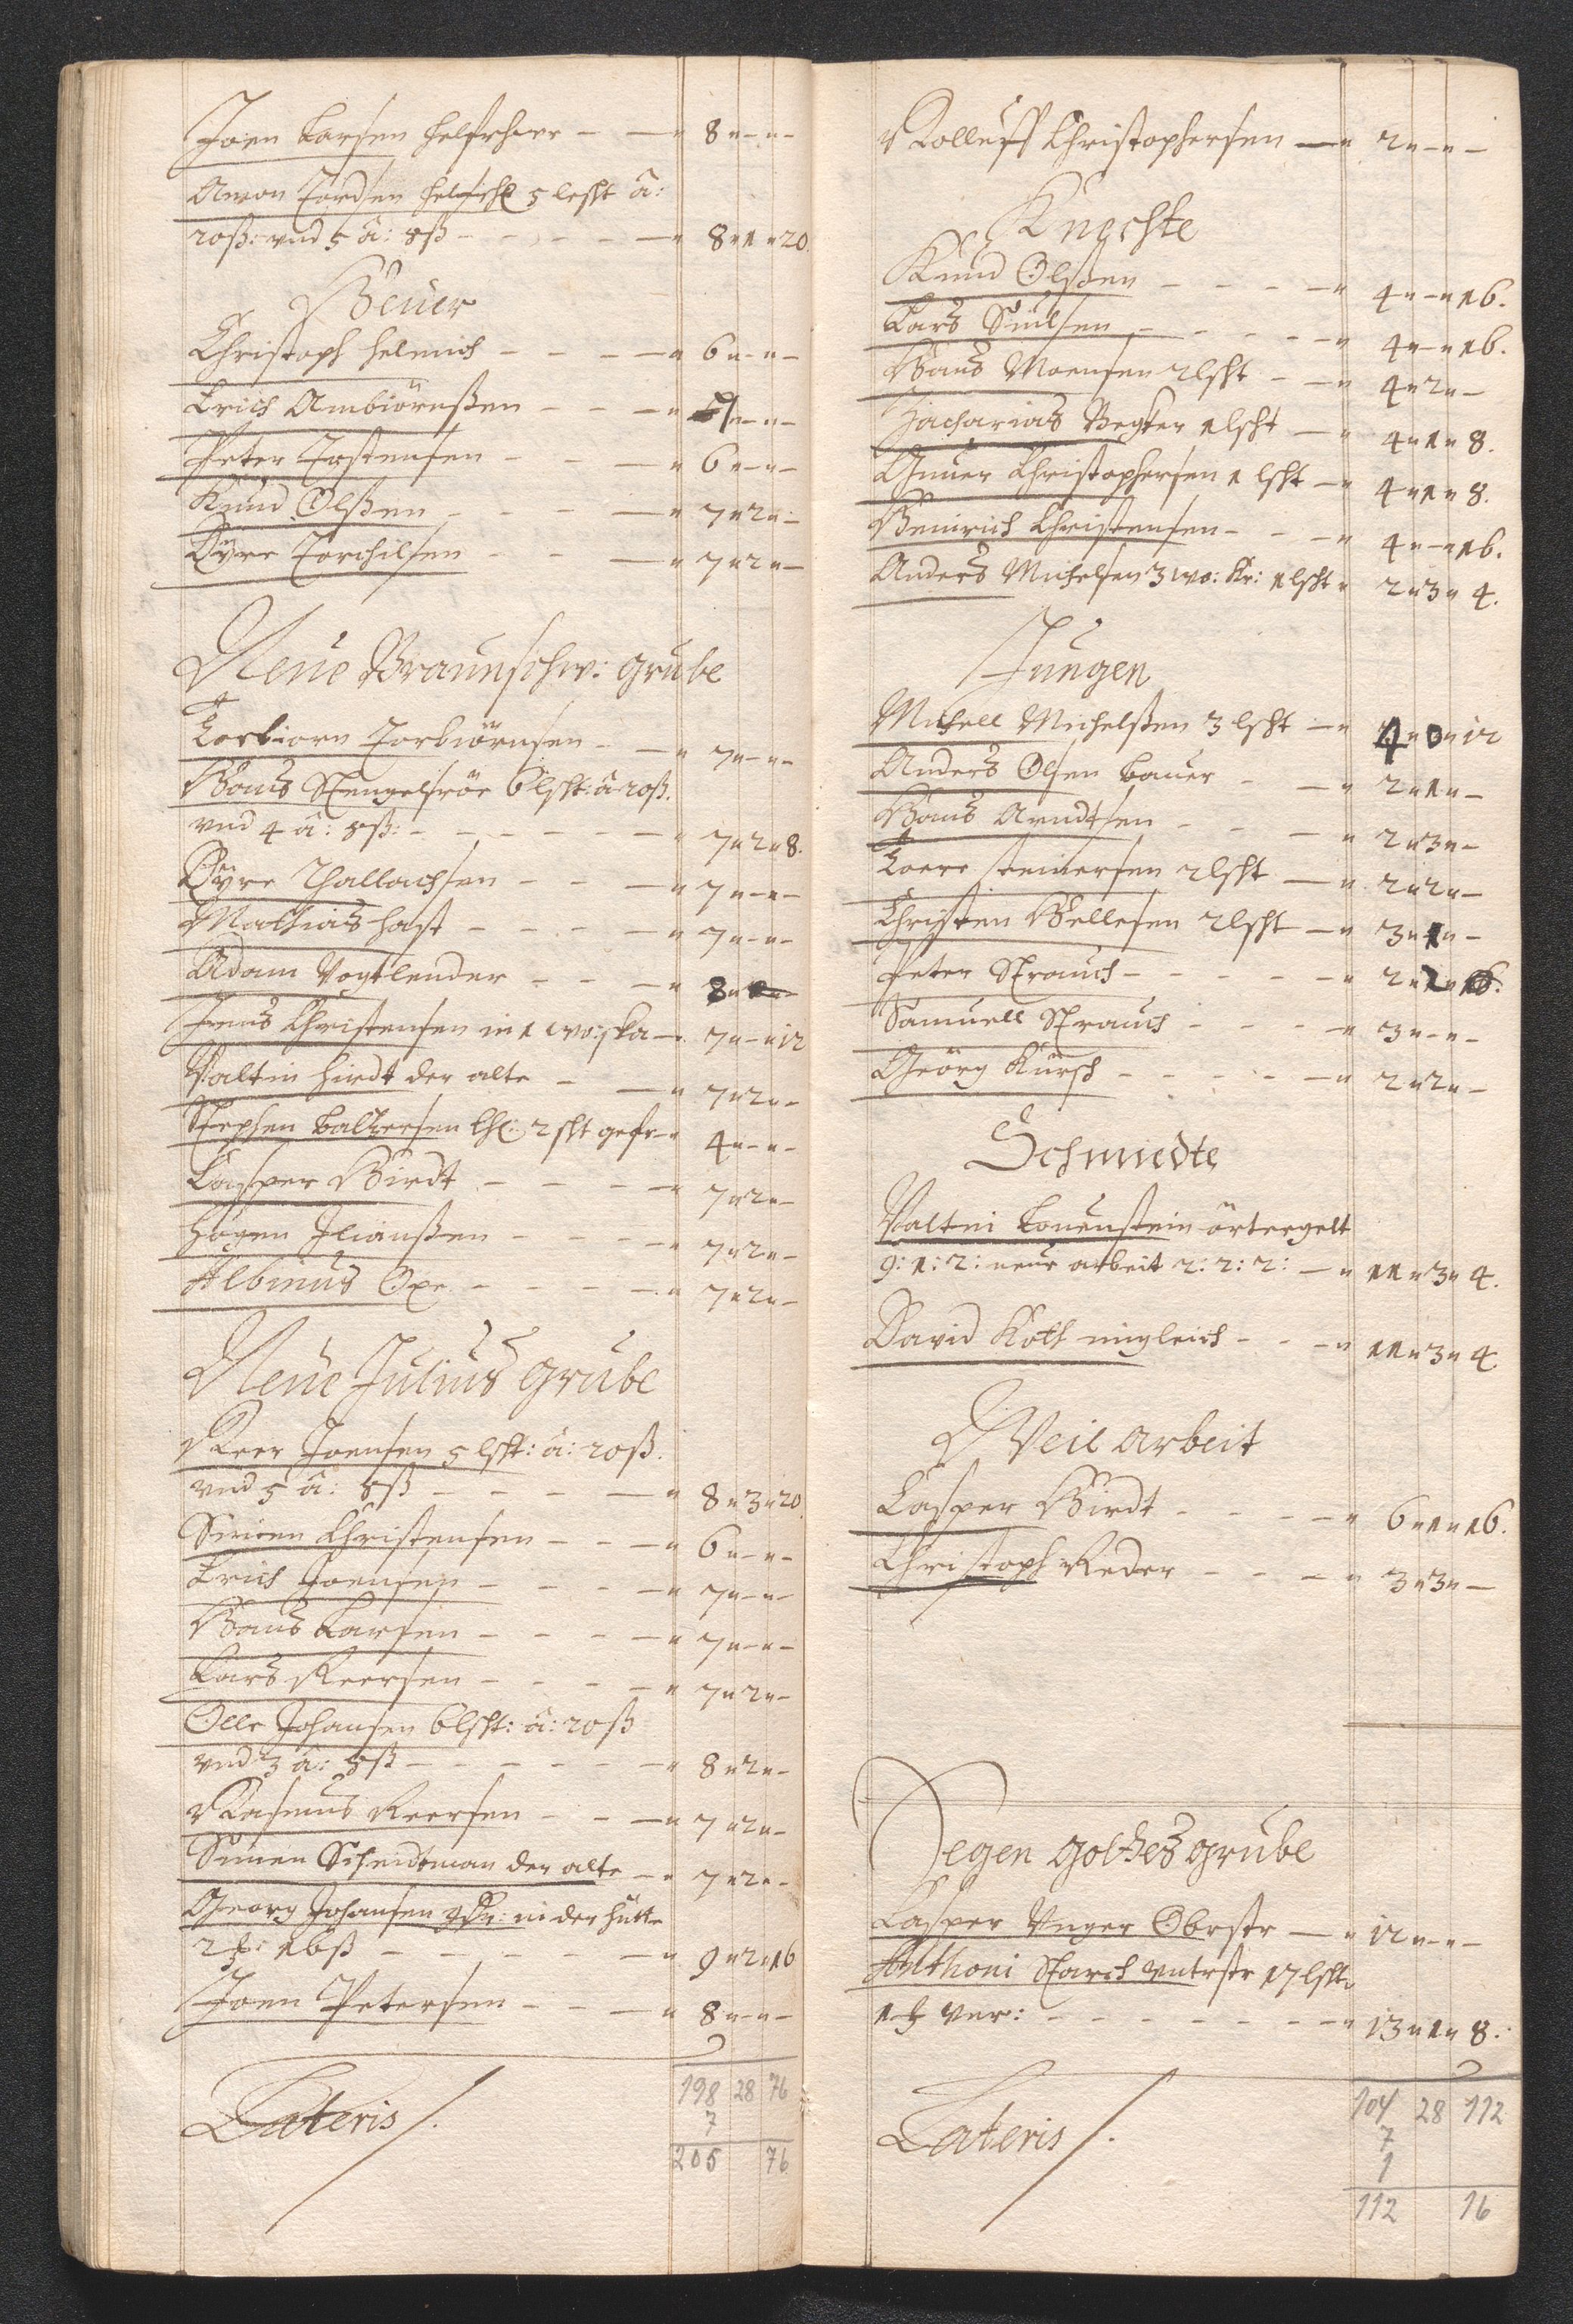 Joen Larsen helffheer - - " 8 " - " -
Amon Tordsen 5 lescht â:
20ß: und 5 â: 8ß - - - - - " 8 " 1 " 20.
Heuer
Christoph Helmich - - - - " 6 " - " -
Erich Ambiörnßen - - - - " " - " -
Peter Torstensen - - - - " 6 " - " -
Knud Olßen - - - - " 7 " 2 " -
Öyre Torchilsen - - - " 7 " 2 " -
Neue Braunschw: grube
Torbiorn Torbiörnsen - - " 7 " - " -
Hans Stengelsröe 6 lscht: â 20ß.
und 4 â: 8ß: - - - - - " 7 " 2 " 8.
Öyre Thallachsen - - - " 7 " - " -
Mathias hast - - - - " 7 " - " -
Adam Vogtlender - - - " 8 " -
Jens Christensen in 1 wo: ska - " 7 " - " 12
Valtin Hirdt der alte - - " 7 " 2 " -
Stephen Baltzersen 2 scht gefr - " 4 " - " -
Casper Hirdt - - - - " 7 " 2 " -
Högen Jlianßen - - - - " 7 " 2 " -
Albinus Oxe - - - - " 7 " 2 " -
Neue Julius grube
Reer Joensen 5 lscht: â: 20ß.
und 5 â: 8ß - - - - " 8 " 3 " 20
Simen Christensen - - - " 6 " - " -
Erich Joensen - - - - " 7 " - " -
Hans Larsen - - - - " 7 " - " -
Lars Reersen - - - - " 7 " 2 " -
Olle Johansen 6 lscht: â: 20ß
und 3 â: 8ß - - - - - - " 8 " 2 " -
Rasmus Reersen - - - " 7 " 2 " -
Simen Scheidtman der alte - " 7 " 2 " -
Georg Johansen in der hütte
2 16ß - - - - - - " 9 " 2 " 16
Joen Petersen - - - " 8 " - " -
Lateris /.
198 28 76
7
205 76
Rolluff Christophersen - " 2 " - " -
Knechte
Knud Olßen - - - - " 4 " - " 16.
Lars Siulsen - - - - " 4 " - " 16.
Hans Moensen 2 lscht - - " 4 " 2 " -
Zacharias Becker 1 lscht - " 4 " 1 " 8.
Gunner Christophersen 1 lscht - " 4 " 1 " 8.
Heinrich Christensen - - - " 4 " - " 16.
Anders Michelsen 3 wo: Kr: 1 lscht " 2 " 3 " 4.
Jungen
Michell Michelßen 3 lscht - " 4 " 0 " 12
Anders Olsen Bauer - - " 2 " 1 " -
Hans Arndtsen - - - " 2 " 3 " -
Toere Steinersen 2 lscht - " 2 " 2 " -
Christen Hellesen 2 lscht - " 3 " 1 " -
Peter Strauch - - - - - " 2 " 2 "
Samuell Strauch - - - - " 3 " - " -
Georg Kürsch - - - - - " 2 " 2 " -
Schmiedte
Valtin Lonenstein örtergelt
9: 1: 2: neue arbeit 2: 2: 2: - " 11 " 3 " 4.
David Koth ingleich - - - " 11 " 3 " 4.
Weil arbeit
Casper Hirdt - - - - " 6 " 1 " 16.
Christoph Reder - - - " 3 " 3 " -
Segen gottes grube
Casper Unger Obrstr - " 12 " - " -
Anthoni Starch untrstr 17 lscht
1 ver: - - - - - - - " 13 " 1 " 8.
Lateris /.
104 28 112
7
1
112 16